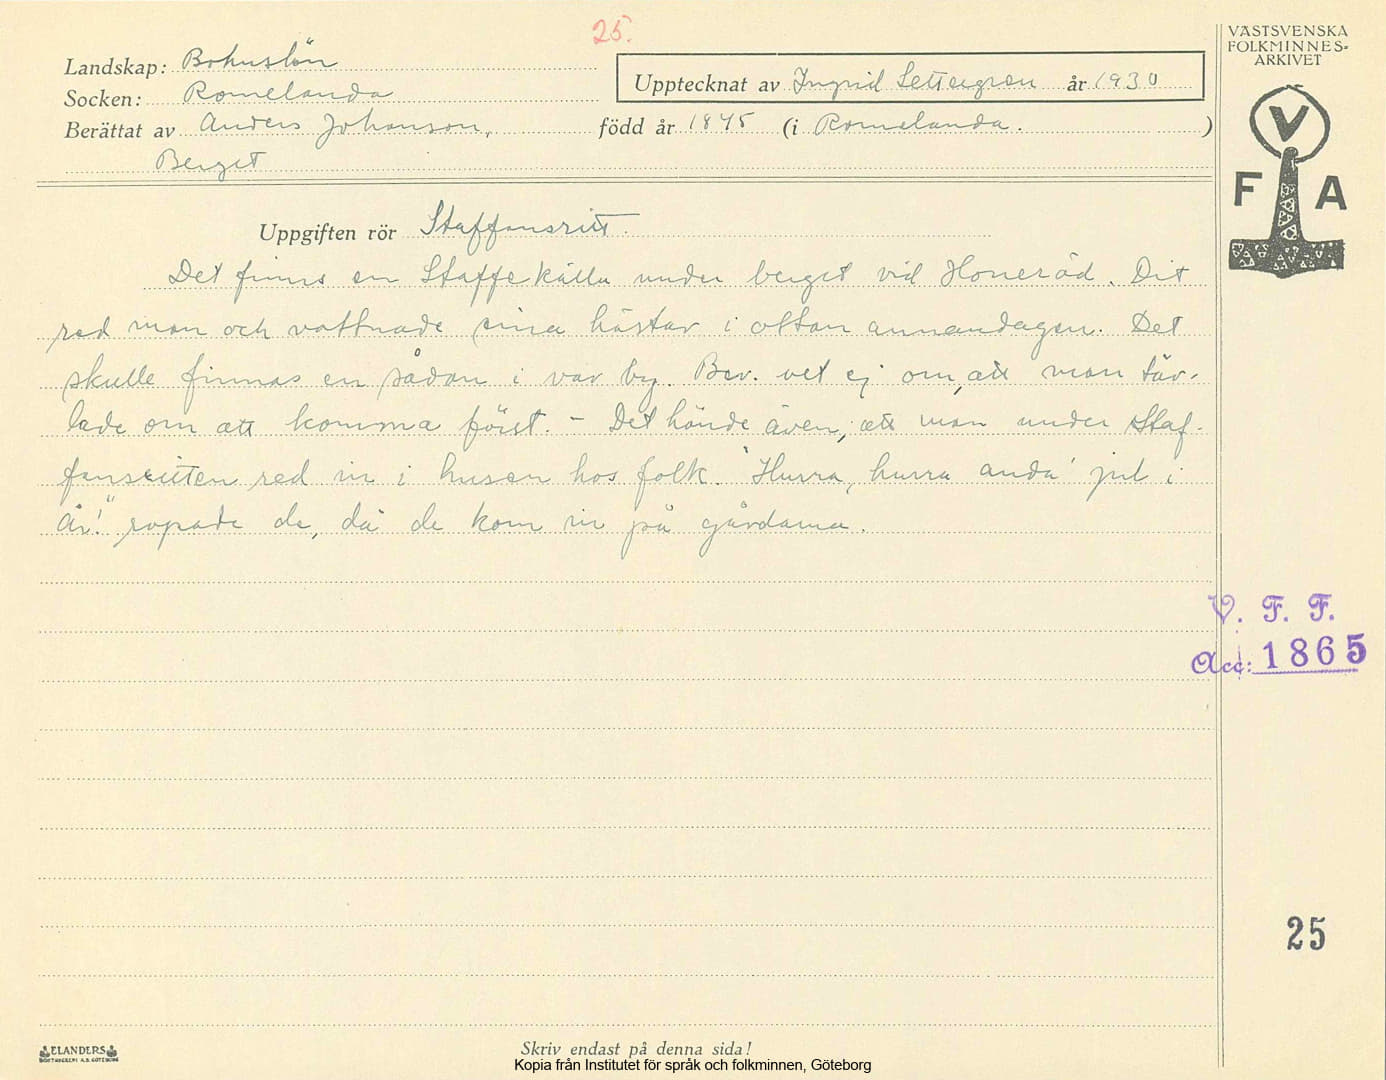 25.
VÄSTSVENSKA
FOLKMINNES-
ARKIVET
V
F A
Landskap: Bohuslän
Upptecknat av Ingrid Settergren år 1930
Socken: Romelanda
Berättat av Anders Johanson, född år 1845 (i Romelanda. )
Berget
Uppgiften rör Staffansritt.
Det finns en Staffekälla under berget vid Honeröd. Dit
red man och vattnade sina hästar i ottan annandagen. Det
skulle finnas en sådan i var by. Ber. vet ej om, att man täv-
lade om att komma först. - Det hände även, att man under Staf-
fansritten red in i husen hos folk. "Hurra, hurra anda' jul i
år!" ropade de, då de kom in på gårdarna.
V. F. F.
Acc: 1865
25
ELANDERS
Skriv endast på denna sida!
Kopia från Institutet för språk och folkminnen, Göteborg